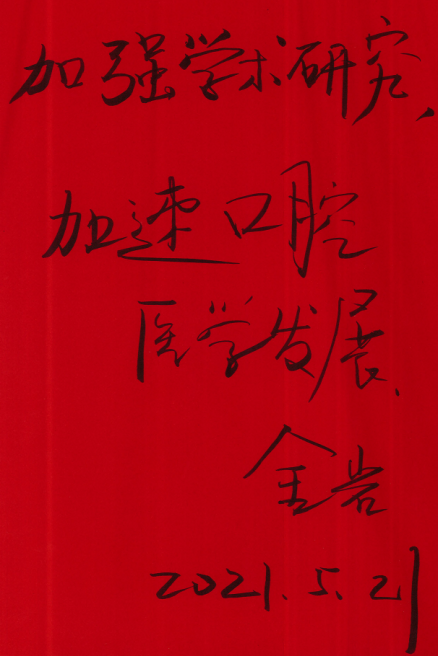 加强学术研究,
加速口腔
医学发展.
金岩
2021.5.21